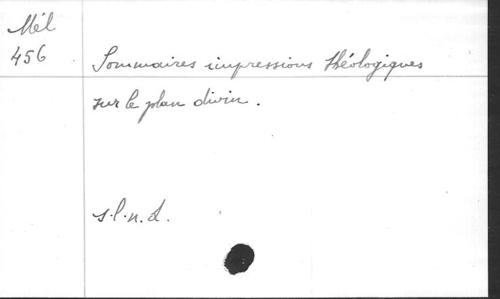 Mél
456
Sommaires impressions théologiques
sur le plan divin.
s.l.n.d.